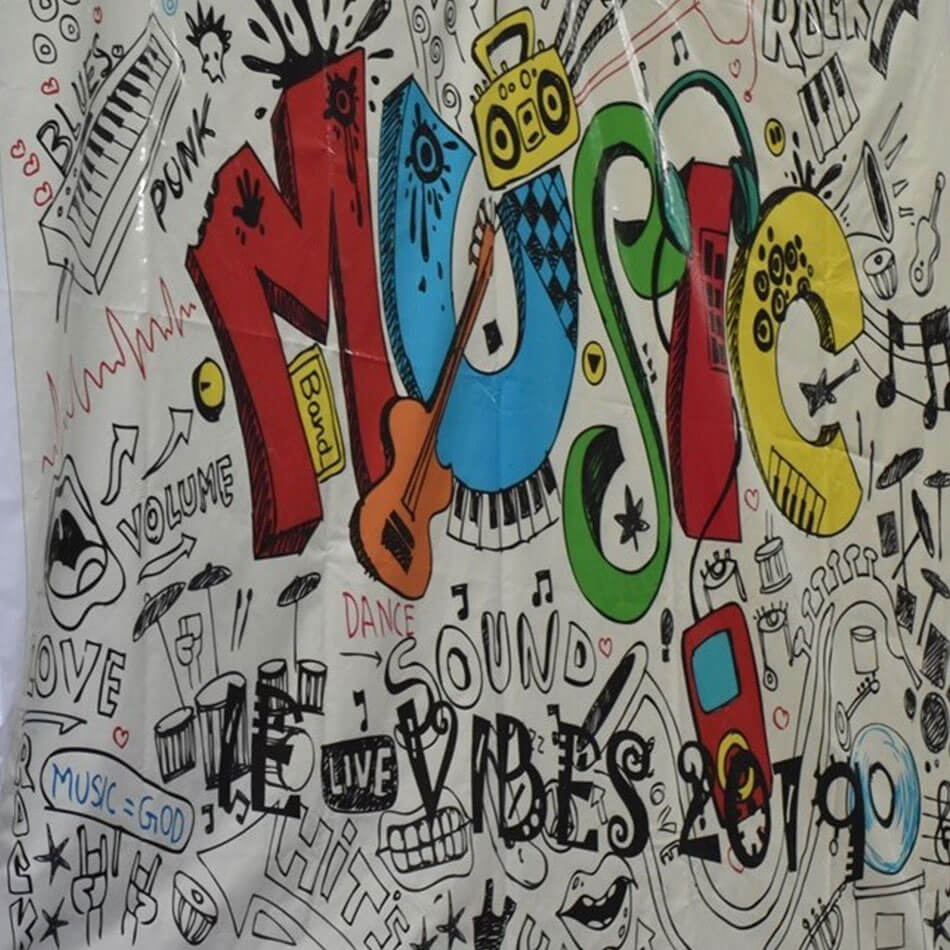 ROCK
BLUES
PUNK
MUSIC
Band
VOLUME
DANCE
SOUND
LOVE
LE VIBES 2019
LIVE
MUSIC = GOD
HiTS